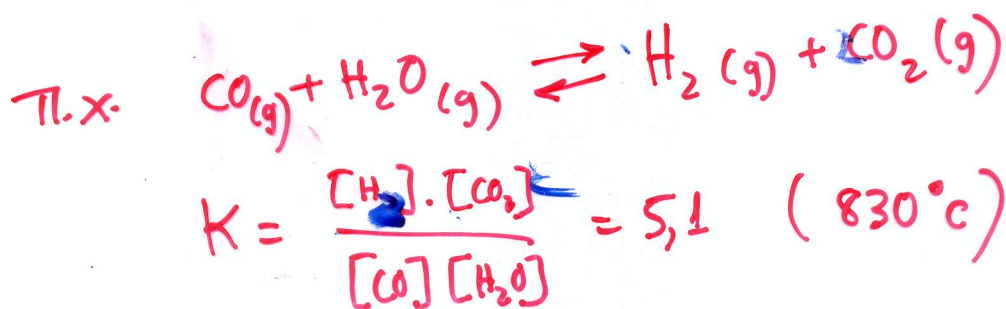 π.χ. CO(g) + H₂O (g) ⇌ H₂ (g) + CO₂ (g)
K = [H₂].[CO₂] / [CO][H₂O] = 5,1 (830°C)